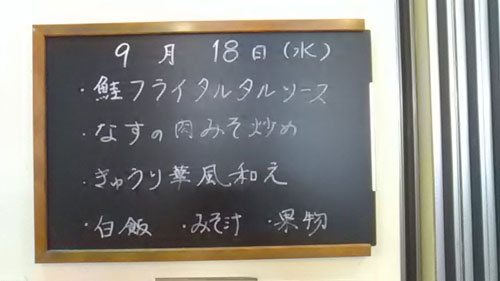 9月18日(水)
・鮭フライタルタルソース
・なすの肉みそ炒め
・きゅうり華風和え
・白飯 ・みそ汁 ・果物